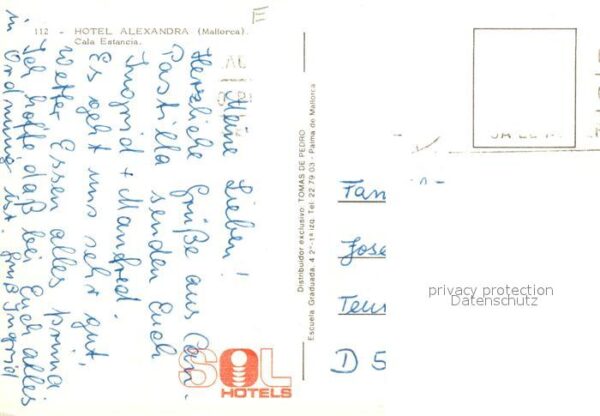 112 - HOTEL ALEXANDRA (Mallorca).
Cala Estancia.
Meine Lieben!
Herzliche Grüße aus Can
Pastilla senden Euch
Ingrid + Manfred.
Es geht uns sehr gut,
Wetter Essen alles prima
Ich hoffe daß bei Euch alles
in Ordnung ist. Gruß Ingrid
SOL
HOTELS
Distribuidor exclusivo: TOMAS DE PEDRO
Escuela Graduada, 4 2°-1ª izq. Tel: 22 79 03 - Palma de Mallorca
Fam
Jose
D 5
privacy protection
Datenschutz